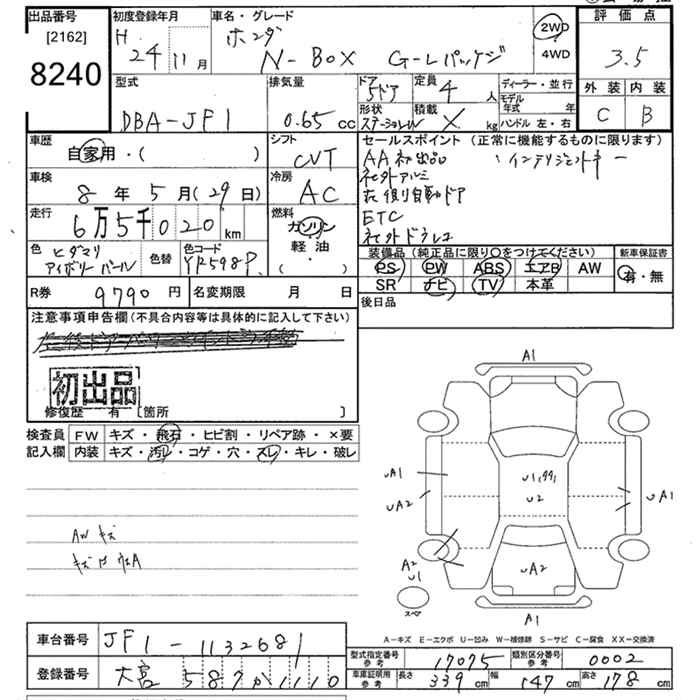 出品番号 初度登録年月 車名・グレード 評価点
[2162] H 24 11月 ホンダ 2WD
8240 N-BOX G-Lパッケージ 4WD 3.5
型式 排気量 ドア 5ドア 定員 4人 ディーラー・並行 外装 内装
DBA-JF1 0.65cc 形状 積載 X kg モデル年式 年 ハンドル 左・右 C B
車歴 シフト セールスポイント(正常に機能するものに限ります)
自家用・( ) CVT AA初出品
車検 冷房 社外アルミ
8年5月(29日) AC 左後り自動ドア
走行 燃料 ETC
6万5千020km ガソリン 社外ドラレコ
軽油・( )
色 ヒダマリアイボリーパール 色替 色コード YR598P 装備品(純正品に限り○をつけてください) 新車保証書
PS PW ABS エアB AW 有・無
R券 9790円 名変期限 月 日 SR ナビ TV 本革
後日品
注意事項申告欄(不具合内容等は具体的に記入して下さい)
初出品
修復歴 有[箇所 ]
検査員 FW キズ・飛石・ヒビ割・リペア跡・×要
記入欄 内装 キズ・汚レ・コゲ・穴・スレ・キレ・破レ
A1
uA1
uA2
u2
uA1
AWキズ
A2
u1
uA2
スペア
A1
A-キズ E-エクボ U-凹み W-補修跡 S-サビ C-腐食 XX-交換済
車台番号 JF1-1132681
型式指定番号 参考 17075 類別区分番号 参考 0002
登録番号 大宮 587か1110
車庫証明用 参考 長さ 339cm 幅 147cm 高さ 178cm